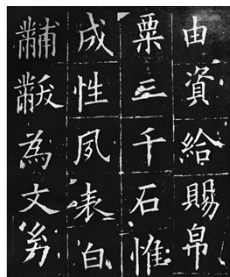 由資給賜帛
粟三千石惟
成性夙表白
黼黻為文